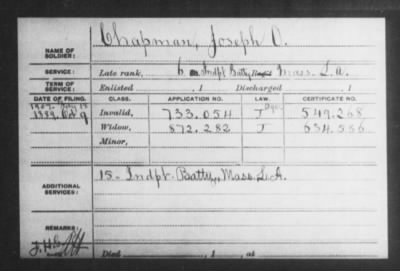 NAME OF SOLDIER: Chapman, Joseph O.
SERVICE: Late rank, 6 Indpt Batty Mass. L.A.
TERM OF SERVICE: Enlisted , 1 Discharged , 1
DATE OF FILING. CLASS. APPLICATION NO. LAW. CERTIFICATE NO.
Invalid, 733.054 J 549.268
Widow, 872.282 J 634.586
Minor,
ADDITIONAL SERVICES: 15- Indpt. Batty, Mass. L.A.
REMARKS:
Died , 1 , at